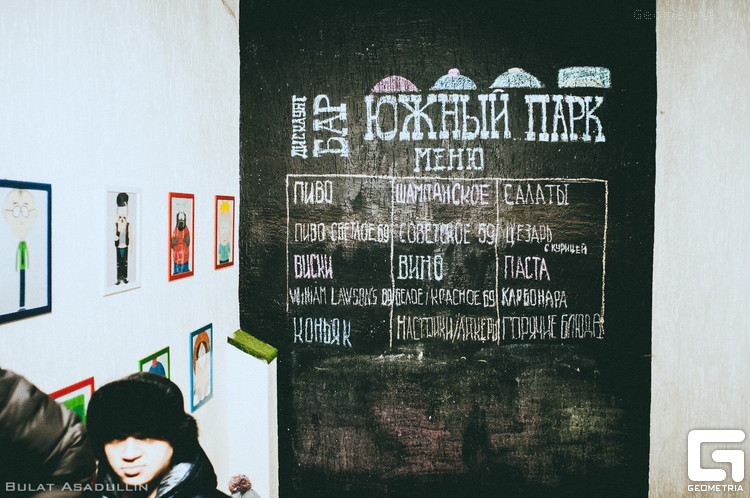 Geometria
ДИСКАУНТ
БАР
ЮЖНЫЙ ПАРК
МЕНЮ
ПИВО ШАМПАНСКОЕ САЛАТЫ
ПИВО СВЕТЛОЕ 69 СОВЕТСКОЕ 59 ЦЕЗАРЬ
С КУРИЦЕЙ
ВИСКИ ВИНО ПАСТА
WILLIAM LAWSON'S 89 БЕЛОЕ/КРАСНОЕ 69 КАРБОНАРА
КОНЬЯК НАСТОЙКИ/ЛИКЕРЫ ГОРЯЧИЕ БЛЮДА
BULAT ASADULLIN
GEOMETRIA